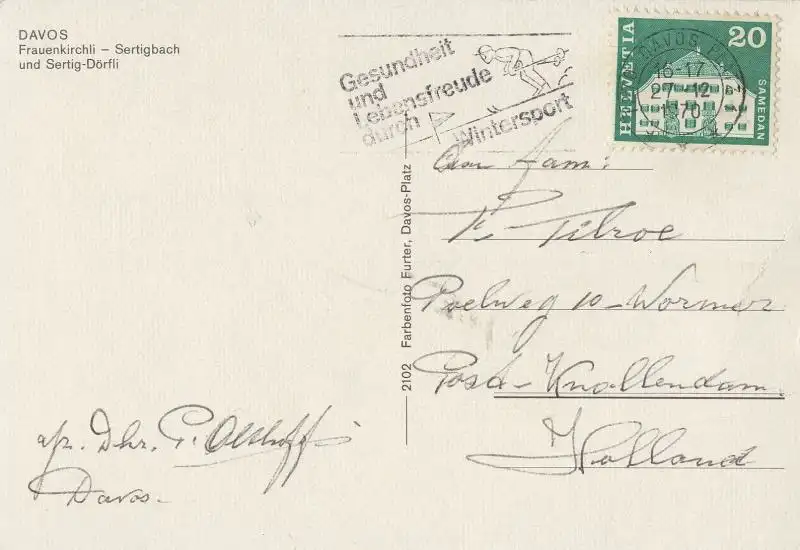 DAVOS
Frauenkirchli – Sertigbach
und Sertig-Dörfli
Gesundheit
und
Lebensfreude
durch
Wintersport
HELVETIA
20
SAMEDAN
DAVOS P
16-17
27 12
1970
2102 Farbenfoto Furter, Davos-Platz
Aan fam:
P. Pilroe
Poelweg 10 - Wormer
Post - Knollendam.
Holland
afz. Dhr. P. Olthoff
Davos.